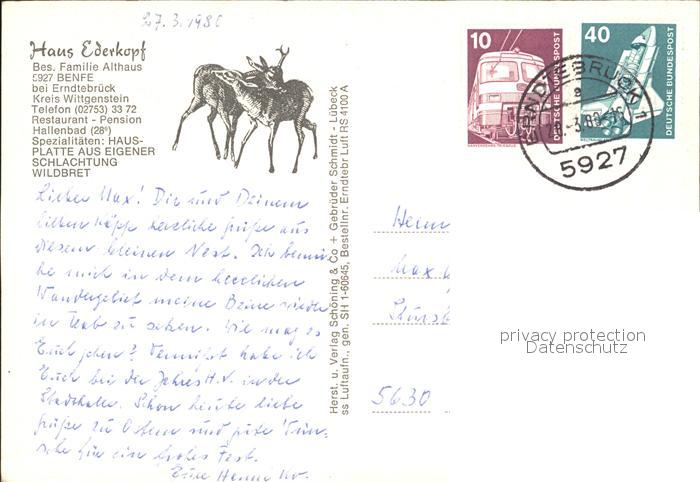 27.3.1980
Haus Ederkopf
Bes. Familie Althaus
5927 BENFE
bei Erndtebrück
Kreis Wittgenstein
Telefon (02753) 33 72
Restaurant - Pension
Hallenbad (28°)
Spezialitäten: HAUS-
PLATTE AUS EIGENER
SCHLACHTUNG
WILDBRET
Lieber Max! Dir und Deinem
lieben herzliche Grüße aus
diesem kleinen Nest. Ich bemü-
he mich in dem herrlichen
Wandergebiet meine Beine wieder
in Trab zu setzen. Wie mag es
Euch gehen? Vermißt habe ich
Euch bei der Jahres H.V. in der
Stadthalle. Schon heute liebe
Grüße zu Ostern und gute Wün-
sche für ein frohes Fest.
Eure
Herst. u. Verlag Schöning & Co + Gebrüder Schmidt - Lübeck
ss Luftaufn., gen. SH 1-60645, Bestellnr. Erndtebr Luft RS 4100 A
10
DEUTSCHE BUNDESPOST
40
DEUTSCHE BUNDESPOST
ERNDTEBRÜCK 1
a
5927
Max
5630
privacy protection
Datenschutz